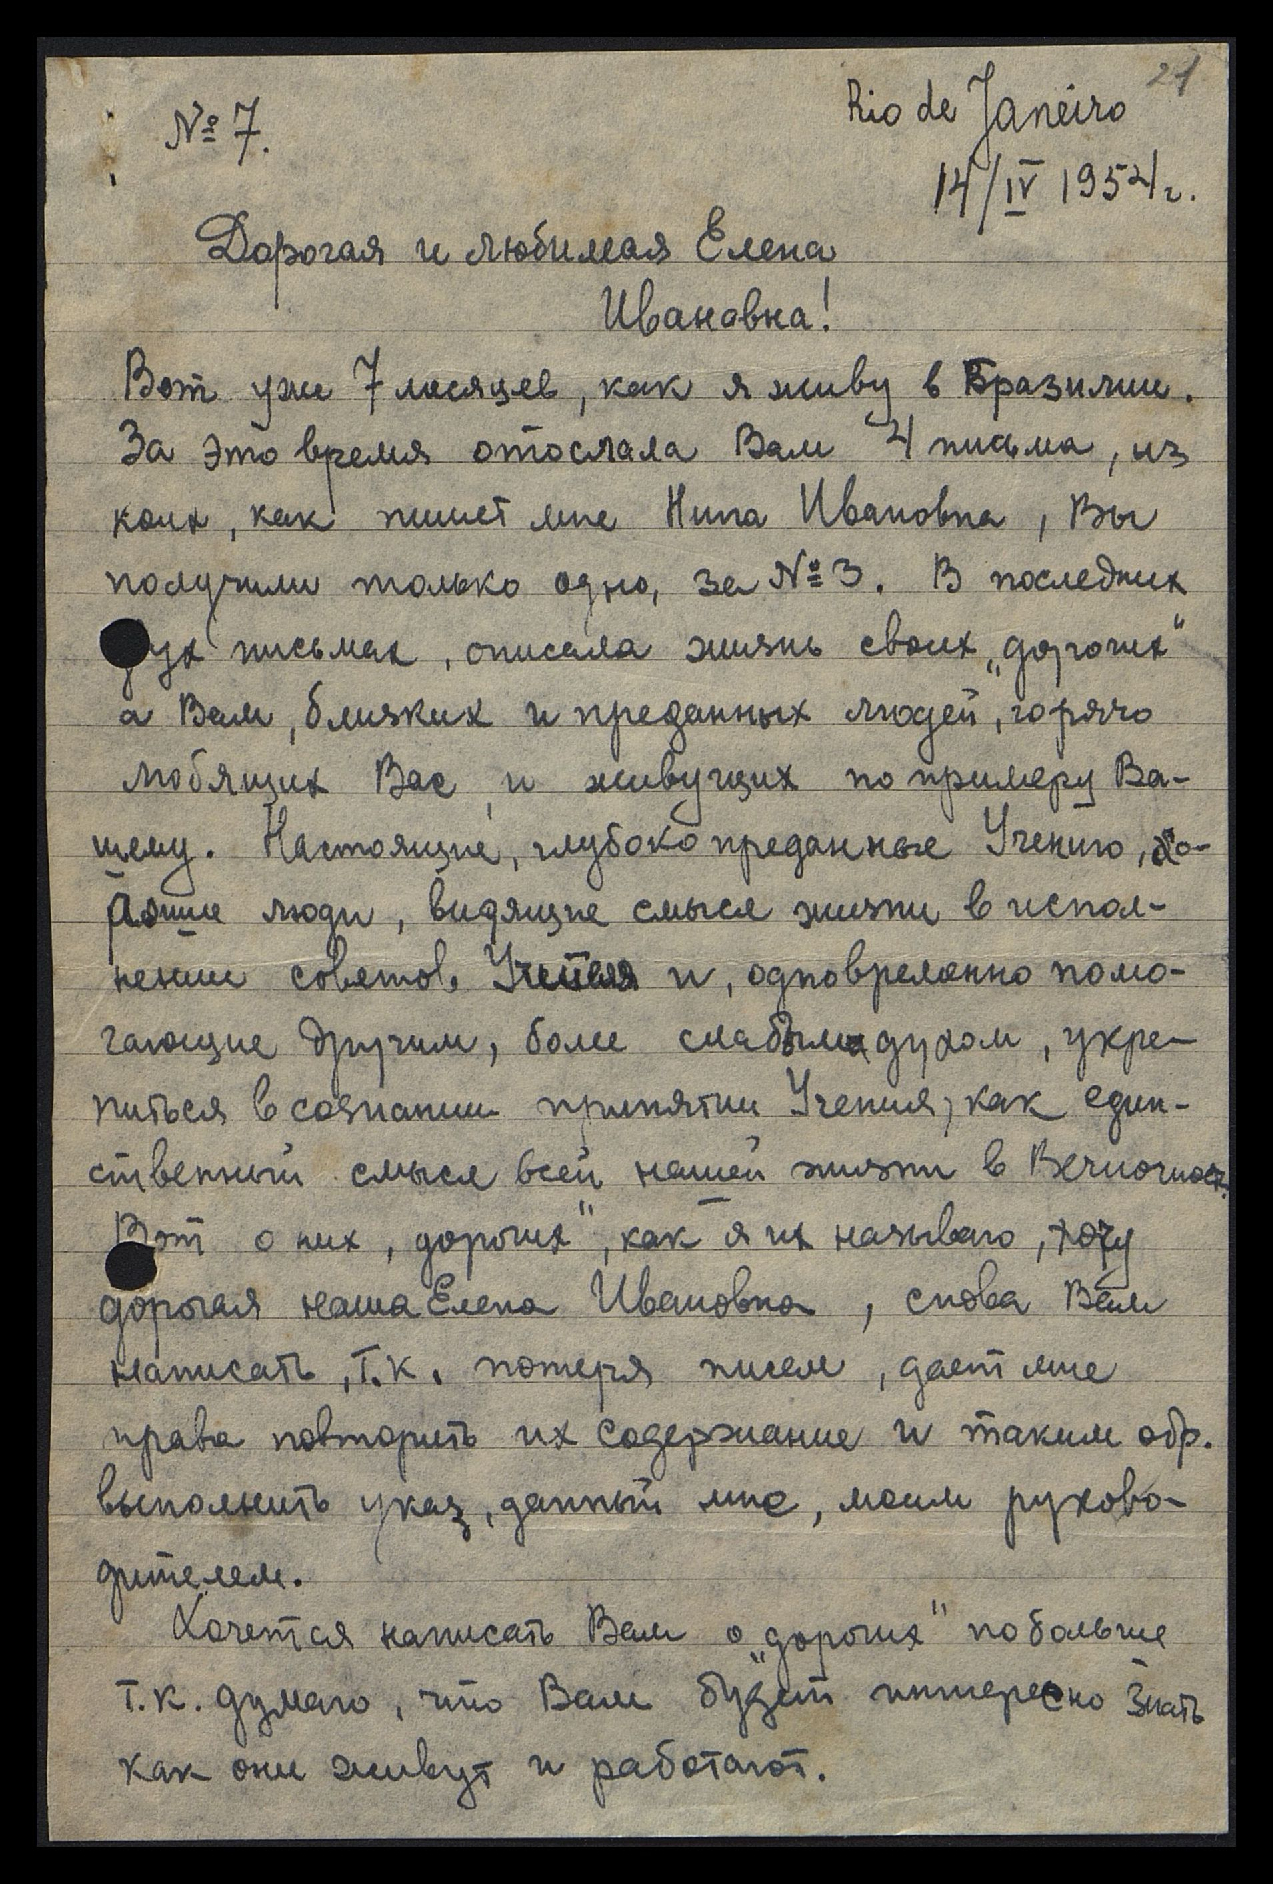 21
№ 7.
Rio de Janeiro
14/IV 1954 г.
Дорогая и любимая Елена
Ивановна!
Вот уже 7 месяцев, как я живу в Бразилии.
За это время отослала Вам 4 письма, из
коих, как пишет мне Нина Ивановна, Вы
получили только одно, за № 3. В последних
двух письмах, описала жизнь своих „дорогих"
а Вам, близких и преданных людей, горячо
любящих Вас и живущих по примеру Ва-
шему. Настоящие, глубоко преданные Учению, хо-
рошие люди, видящие смысл жизни в испол-
нении советов Учителя и, одновременно помо-
гающие другим, более слабым духом, укре-
питься в сознании принятии Учения, как един-
ственный смысл всей нашей жизни в Вечности.
Вот о них, „дорогих", как я их называю, хочу
дорогая наша Елена Ивановна, снова Вам
написать, т.к. потеря писем, дает мне
права повторить их содержание и таким обр.
выполнить указ, данный мне, моим руково-
дителем.
Хочется написать Вам о „дорогих" побольше
т.к. думаю, что Вам будет интересно знать
как они живут и работают.